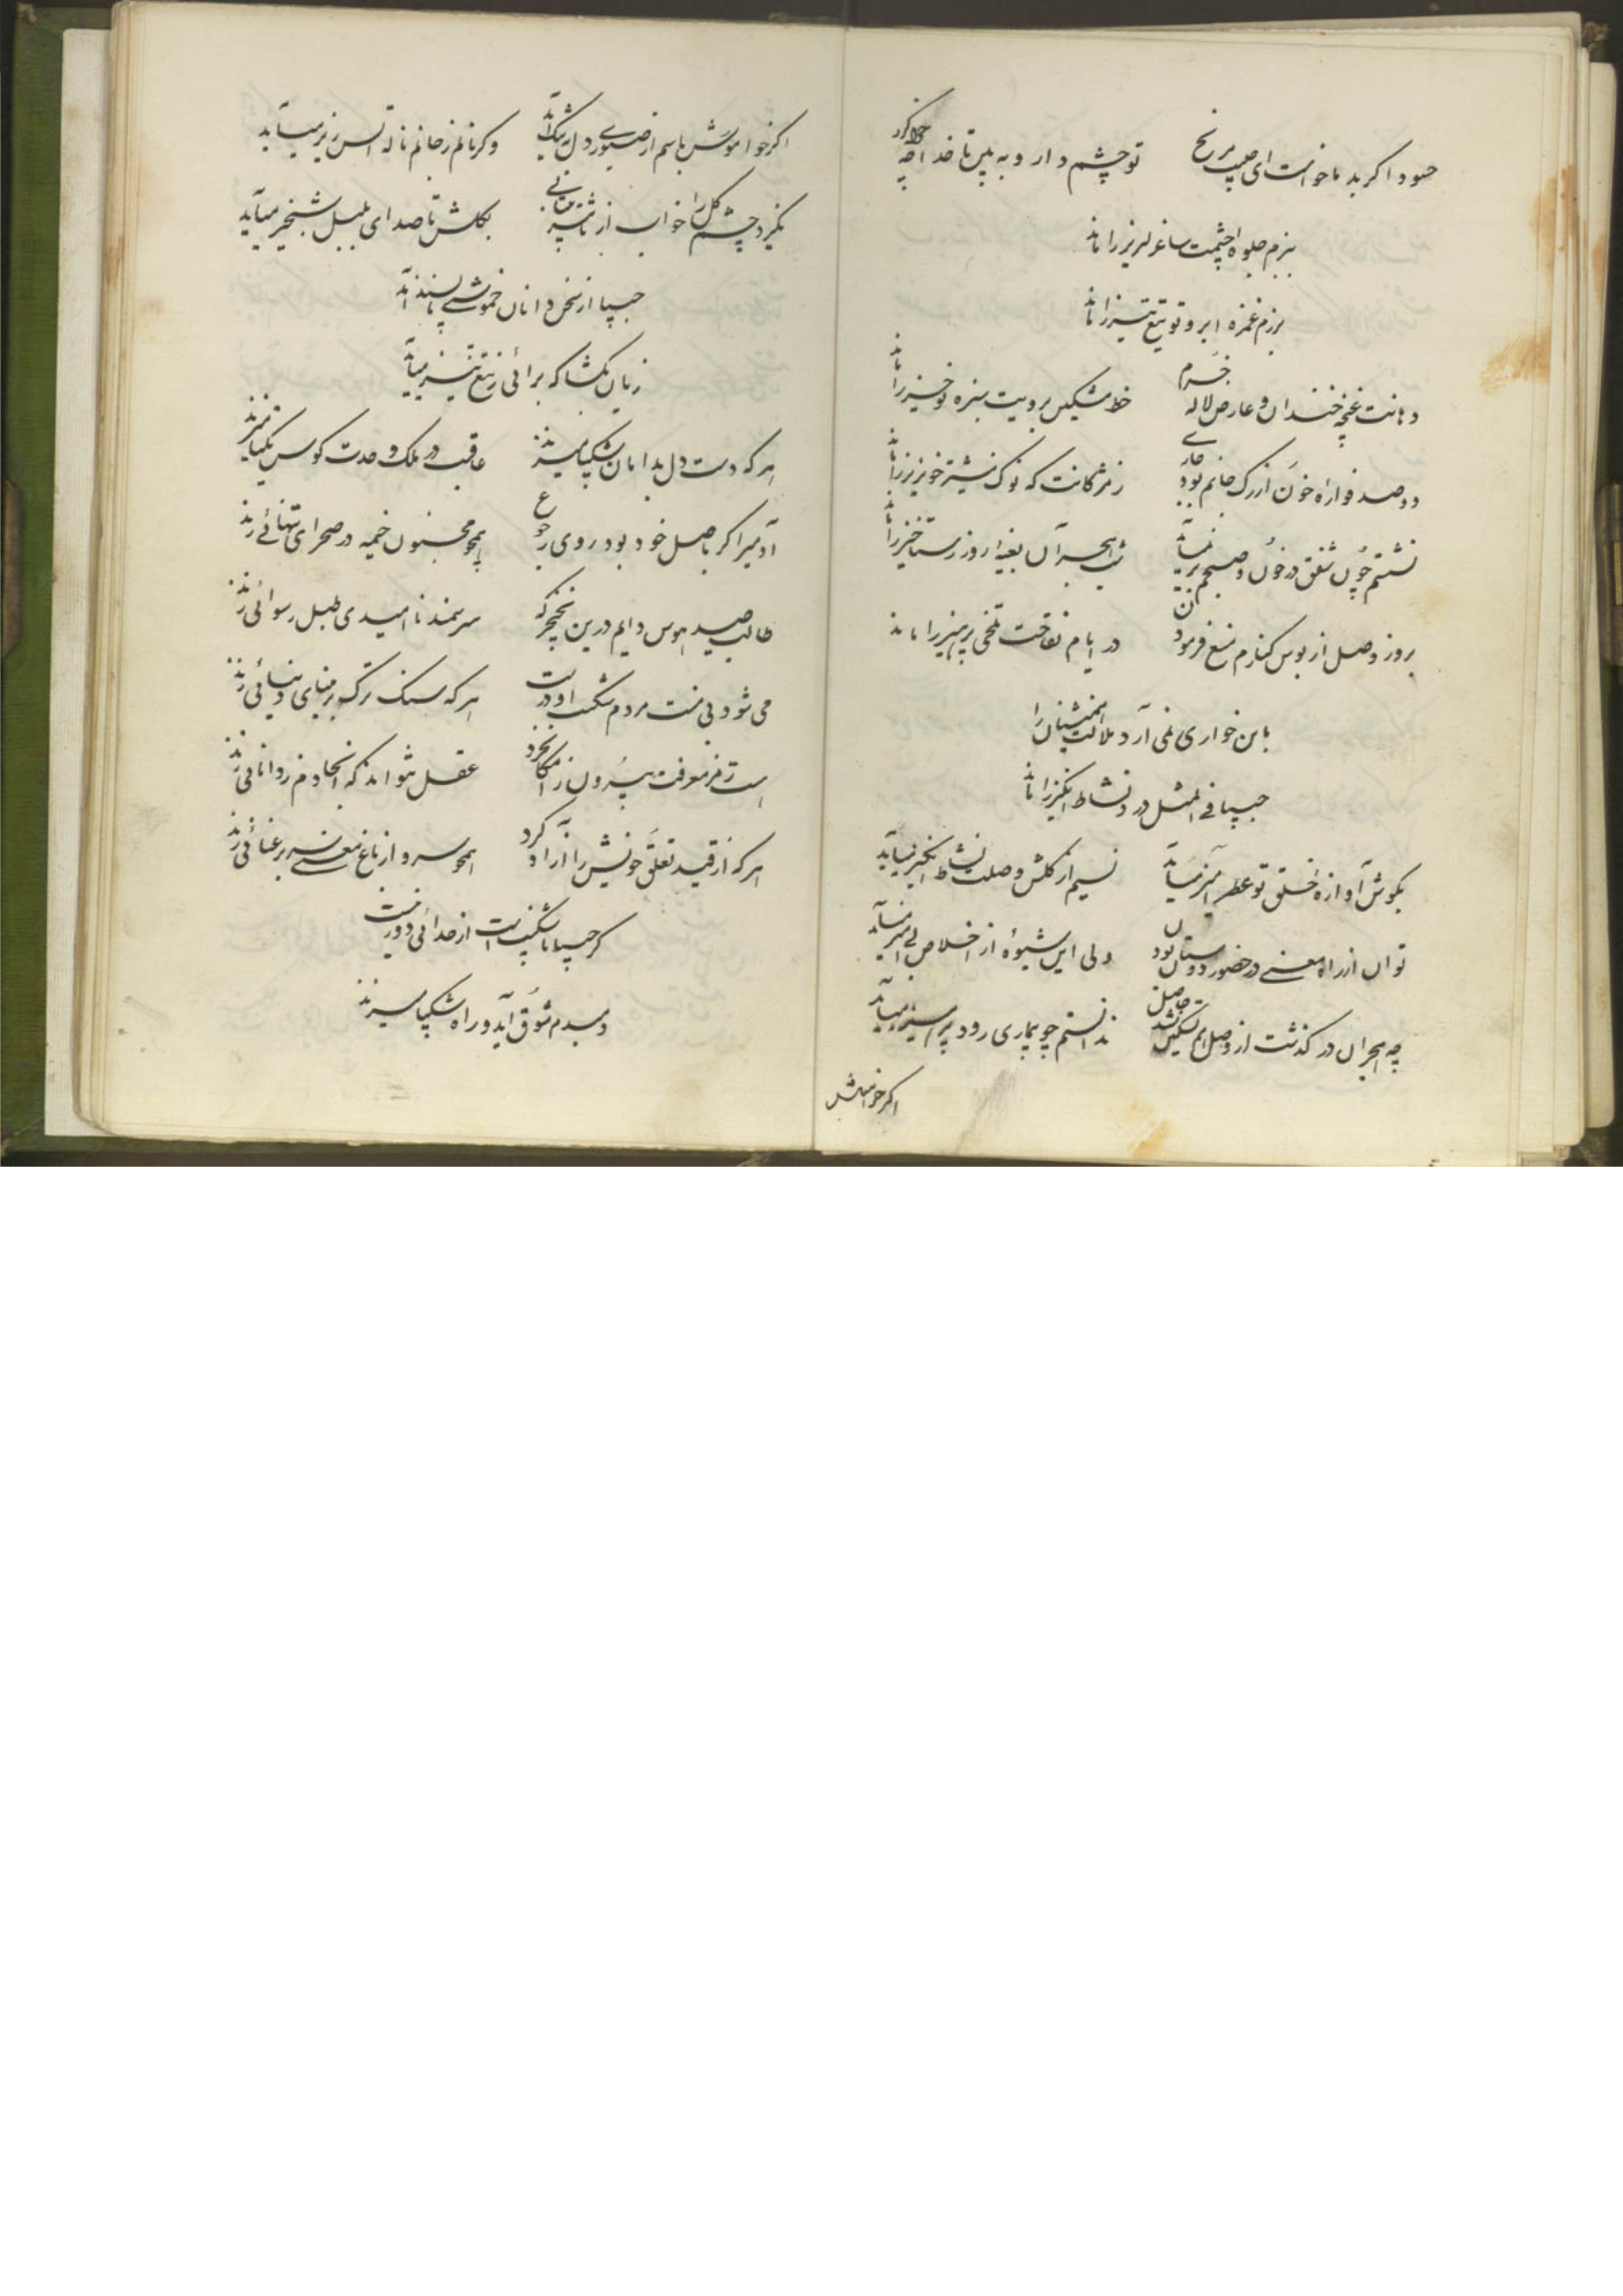 حسود اگر بد ما خواست ای حبیب مرنج تو چشم دار و به بین تا خدا چه خواهد کرد
ببزم جلوه چشمت ساغر لبریز را ماند
برزم غمزه ابرو تو تیغ تیز را ماند
دهانت غنچه خندان و عارض لاله خرم خط مشکین برویت سبزه نوخیز را ماند
دو صد فواره خون از رگ جانم بود جاری ز مژگانت که نوک نیشتر خونریز را ماند
نشستم چون شفق در خون و صبحم بر نمیآید شب هجران بعینه روز رستاخیز را ماند
بروز وصل از بوس کنارم منع فرمودن در ایام نقاهت تلخی پرهیز را ماند
باین خواری نمی آرد ملالت همنشینان را
حبیبا فی المثل درد نشاط انگیز را ماند
بگوش آوازه خلق تو عطر آمیز میآید نسیم از گلشن وصلت نشاط انگیز میآید
توان از راه معنی در حضور دوستان بودن ولی این شیوه از اخلاص
چه هجران در گذشت از وصل هم تسکین نشد حاصل ندانستم چو بیماری رود پرهیز میآید
اگر خواموش
اگر خواموش باشم از صبوری دل به تنگ آید و گر نالم ز جانم ناله میآید
نگیرد چشم گل را خواب از بیتابی بگلشن تا صدای بلبل شبخیز میآید
حبیبا از سخن دانان خموشی ناپسند آید
زبان بگشا که برائی ز تیغ تیز میآید
هر که دست دل بدامان شکیبا میزند عاقبت در ملک وحدت کوس یکتائی زند
آدمی را گر باصل خود بود روی رجوع همچو مجنون خیمه در صحرای تنهائی زند
طالب صید هوس دایم درین نخچیر که بر سمند ناامیدی طبل رسوائی زند
می شود بی منت مردم شکست او درست هر که سنگ ترک بر مینای دنیائی زند
است رمز معرفت بیرون ز امکان خرد عقل نتواند که آنجا دم ز دانائی زند
هر که از قید تعلق خویش را آزاد کرد همچو سرو از باغ معنی سر برعنائی زند
گر حبیبا ناشکیب است از جدائی دور نیست
دمبدم شوق آید و راه شکیبا میزند